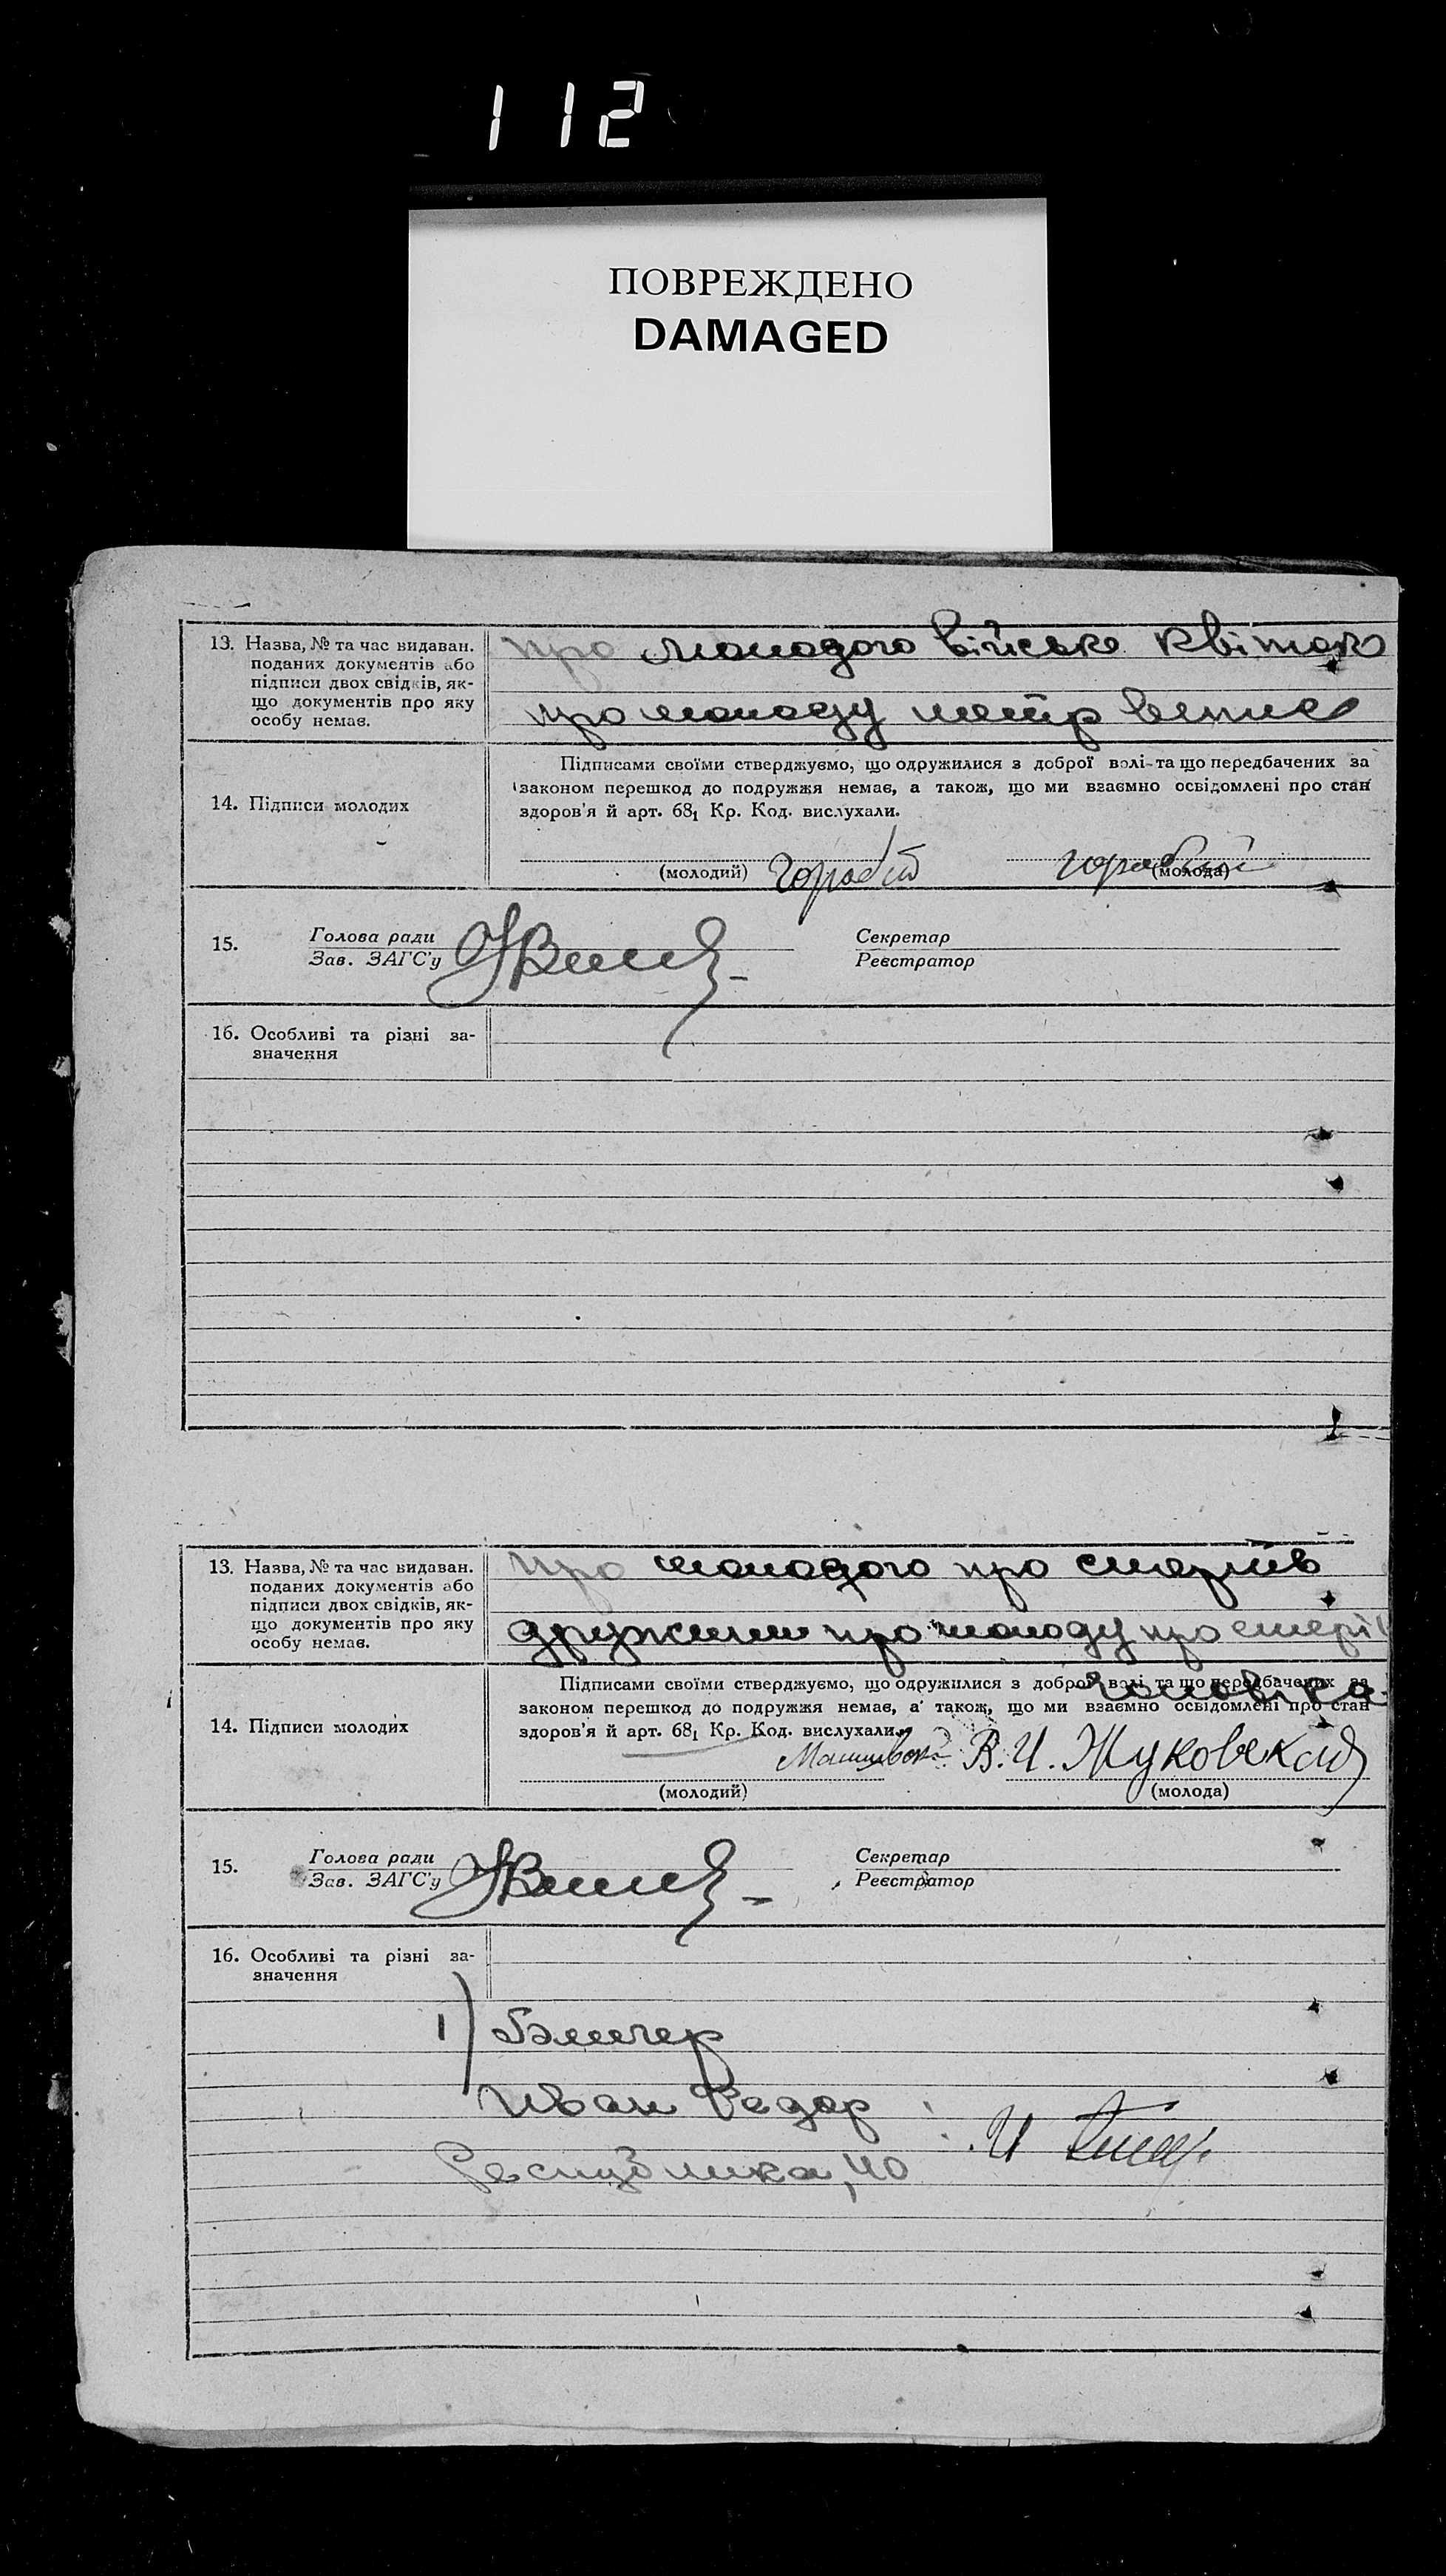 112
ПОВРЕЖДЕНО
DAMAGED
13. Назва, № та час видаван.
поданих документів або
підписи двох свідків, як-
що документів про яку
особу немає.
про молодого військо квиток
про молоду метр випис
14. Підписи молодих
Підписами своїми стверджуємо, що одружилися з доброї волі та що передбачених за
законом перешкод до подружжя немає, а також, що ми взаємно освідомлені про стан
здоров'я й арт. 68₁ Кр. Код. вислухали.
(молодий) Горобій (молода)
15. Голова ради
Зав. ЗАГС'у
Секретар
Реєстратор
16. Особливі та різні за-
значення
13. Назва, № та час видаван.
поданих документів або
підписи двох свідків, як-
що документів про яку
особу немає.
про молодого про смерть
дружини про молоду про смерть
чоловіка.
14. Підписи молодих
Підписами своїми стверджуємо, що одружилися з доброї волі та що передбачених за
законом перешкод до подружжя немає, а також, що ми взаємно освідомлені про стан
здоров'я й арт. 68₁ Кр. Код. вислухали.
В. И. Жуковская
(молодий) (молода)
15. Голова ради
Зав. ЗАГС'у
Секретар
Реєстратор
16. Особливі та різні за-
значення
1)
Иван Федор
Республика, 40